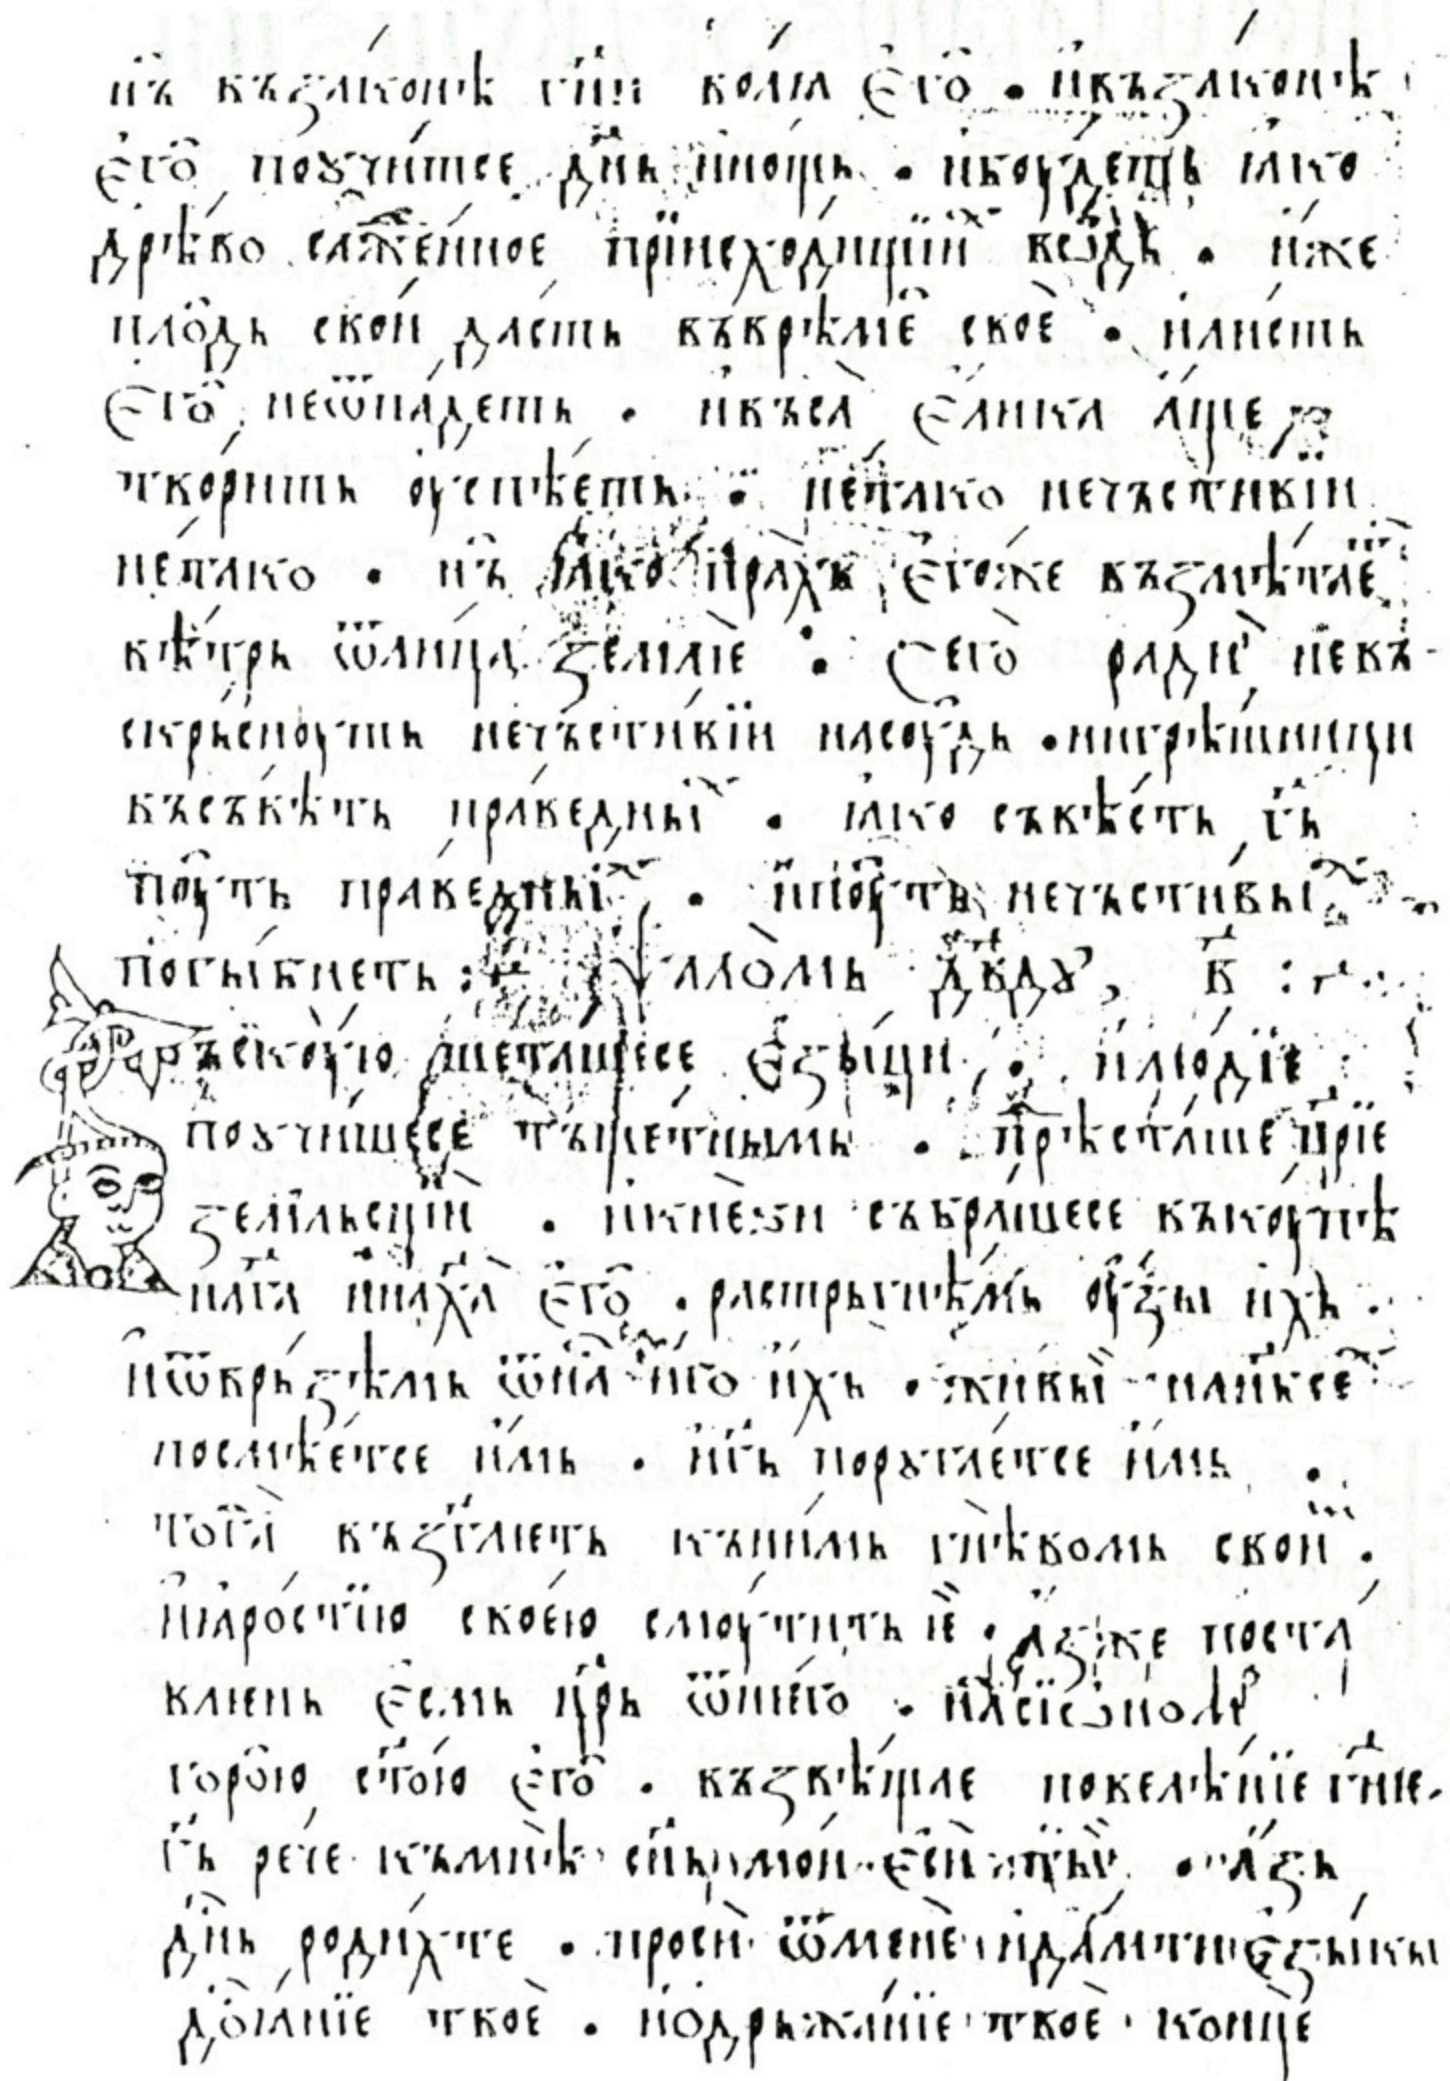 нь въ законѣ гн҃и волꙗ Єго̀ . и҆ въ законѣ
Єго̀ поꙋчи́тсе дн҃ь и҆нощь . и҆ боу́деть ꙗ҆ко
дрѣ́во сажде́нное при҆исходищїи҆х вѡдь . и҆́же
пло́дь свои́ да́сть въ врѣ́ме своѐ . и҆ ли́сть
Єго̀ неѿпа́деть . и҆ въса̀ Є҆лика а҆́ще
тво́рить оу҆спѣ́еть . не́тако нечъсти́вїи
не́тако . нь ꙗ҆ко пра́хь Є҆го́же възмѣ́тае
вѣ́трь ѿлица̀ землѥ̀ . Сего̀ ради невъ-
скрьсноуть нечъсти́вїи на соу́дь . ни грѣ́шници
въ съвѣ́ть пра́ведныи҆х . ꙗ҆ко съвѣ́сть г҃ь
поу́ть пра́ведныи҆х . и҆ поу́ть нечъсти́выи҆х
поги́бнеть : Ѱало́мь дв҃дꙋ , в҃ :
въскоу́ю шета́шесе Є҆зы́ци . и҆ лю́дїе
поꙋчи́шесе тъще́тнымь . прѣ́ста́ше цр҃їе
зе́мльсцїи . и҆ кне́зи събра́шесе въкоу́пѣ
на г҃а и҆ на х҃а Є҆го̀ . растрьгнѣ́мь оу҆́зы и҆́хь .
и҆ ѿврь́зѣмь ѿ на́ и҆́го и҆́хь . живы́и на нб҃се
посмѣе́тсе и҆́мь . и҆ г҃ь порꙋгае́тсе и҆́мь .
тог҃а̀ възгл҃ѥть къ ни́мь гнѣ́вомь свои҆м .
и҆ ꙗ҆́ростїю своею смоу́тить ѥ . а҆́зже поста́
влѥнь Є҆смь цр҃ь ѿ нѥго̀ . на҆ сїѡномь
горо́ю ст҃о́ю Є҆го̀ . възвѣ́щае повелѣ́нїе гн҃ѥ .
г҃ь ре́че къ мнѣ̀ сн҃ь мои́ Є҆сѝ ты̀ . а҆́зь
дн҃ь роди́хте . просѝ ѿ менѐ и҆ да́мти Є҆зы́кы
до҆ꙗ́нїе твоѐ . и҆ о҆дрьжа́нїе твоѐ . конце́